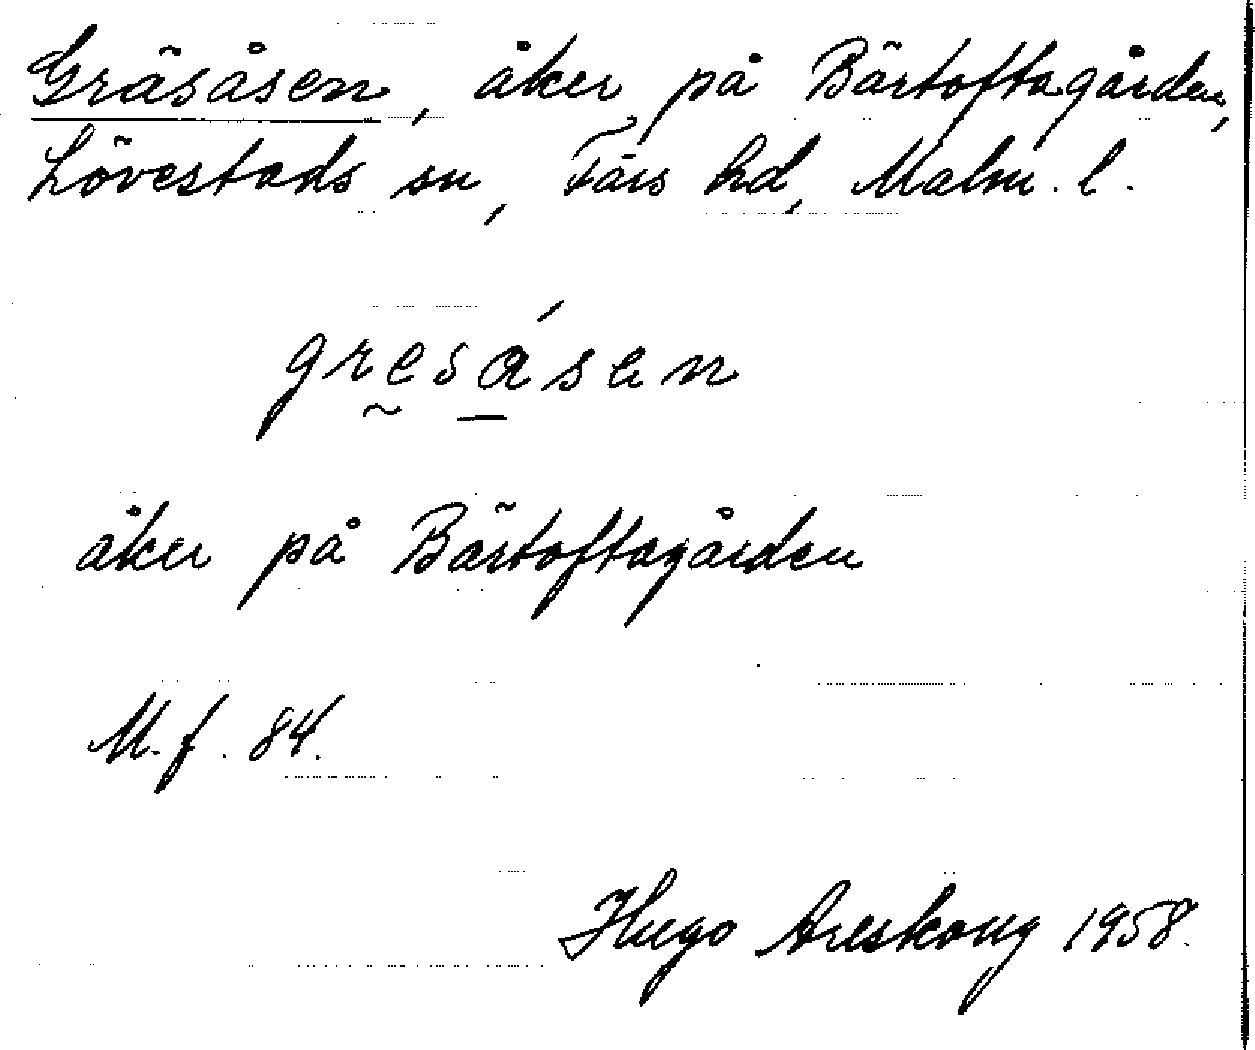 Gräsåsen, åker på Bärtoftagården,
Lövestads sn, Färs hd, Malm. l.
gresa´sen
åker på Bärtoftagården
M.f. 84.
Hugo Areskoug 1958.